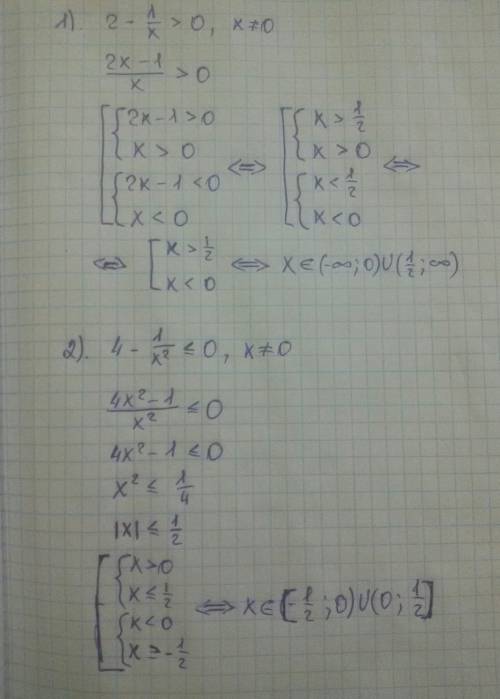 1). 2 - 1/x > 0, x ≠ 0
(2x - 1)/x > 0
[ { 2x - 1 > 0 x > 0 { 2x - 1 < 0 x < 0 ⇔ [ { x > 1/2 x > 0 { x < 1/2 x < 0 ⇔
⇔ [ x > 1/2 x < 0 ⇔ x ∈ (-∞; 0) ∪ (1/2; ∞)
2). 4 - 1/x² ≤ 0, x ≠ 0
(4x² - 1)/x² ≤ 0
4x² - 1 ≤ 0
x² ≤ 1/4
|x| ≤ 1/2
[ { x > 0 x ≤ 1/2 { x < 0 x ≥ -1/2 ⇔ x ∈ [-1/2; 0) ∪ (0; 1/2]